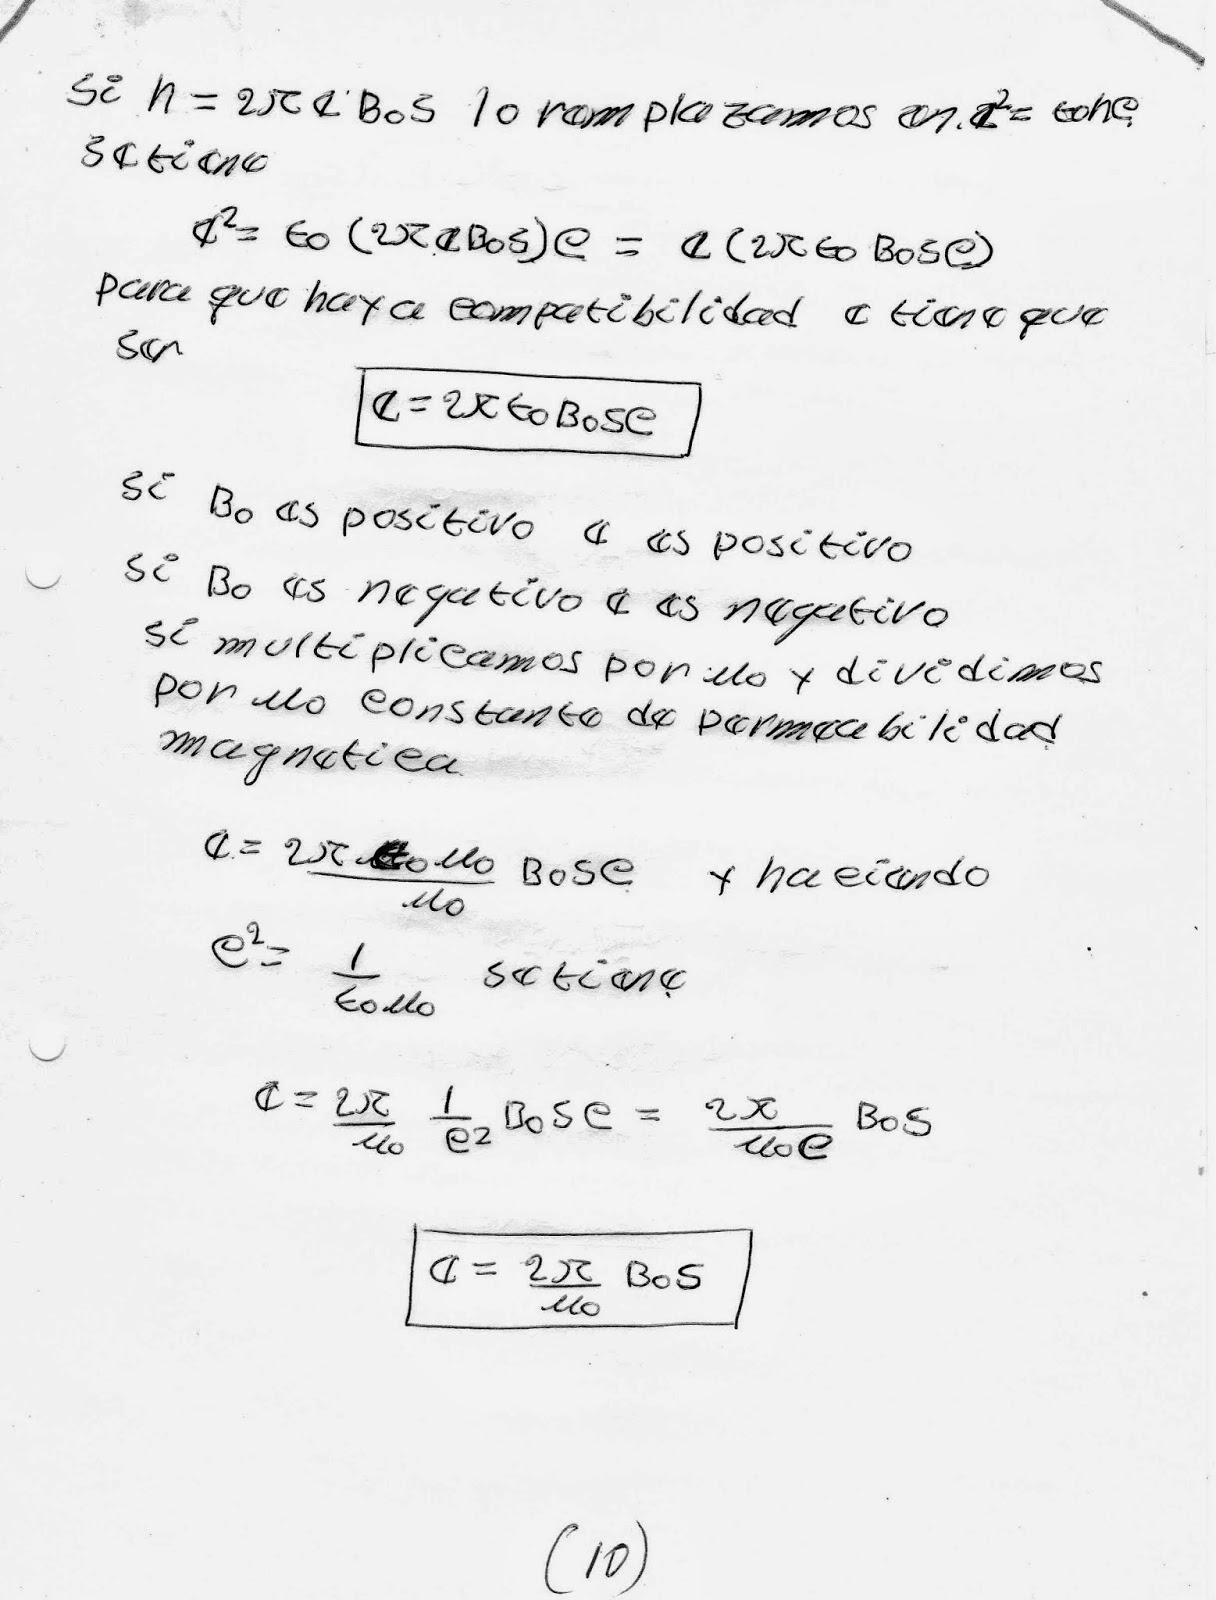 Si h = 2π e B₀S lo remplazamos en e² = ε₀hc
se tiene
e² = ε₀ (2π e B₀S)c = e (2π ε₀ B₀Sc)
para que haya compatibilidad e tiene que
ser
e = 2π ε₀ B₀Sc
Si B₀ es positivo e es positivo
Si B₀ es negativo e es negativo
Si multiplicamos por μ₀ y dividimos
por μ₀ constante de permeabilidad
magnetica
e = 2π ε₀ μ₀ / μ₀ B₀Sc y haciendo
c² = 1 / ε₀μ₀ se tiene
e = 2π / μ₀ 1 / c² B₀Sc = 2π / μ₀c B₀S
e = 2π / μ₀ B₀S
(10)